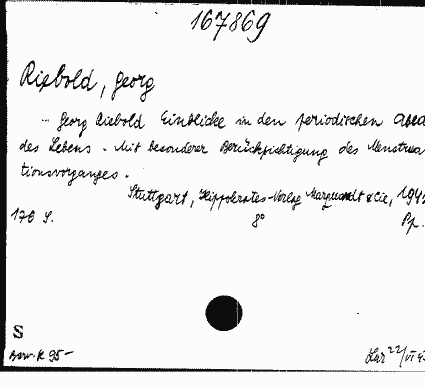 167869
Riebold, Georg
- Georg Riebold Einblicke in den periodischen
des Lebens. Mit besonderer Berücksichtigung des Menstrua
tionsvorganges.
Stuttgart, Hippokrates-Verlag Marquardt & Cie, 194
176 S. 8° Pp.
S
K 95-
22/VI